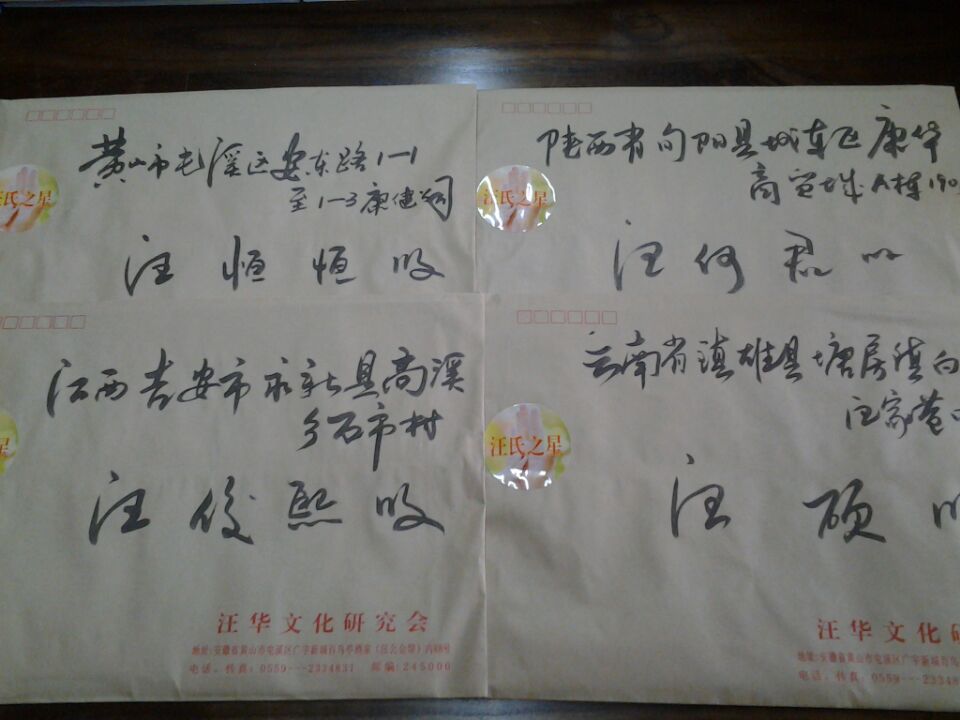 黄山市屯溪区安东路1-1
至1-3康健公司
汪氏之星
汪恒恒收
陕西省旬阳县城东区康华
商贸城A栋190
汪氏之星
汪何君收
江西吉安市永新县高溪
乡石市村
汪俊熙收
汪华文化研究会
地址:安徽省黄山市屯溪区广宇新城百鸟亭檀家(汪公会馆)内88号
电话、传真:0559---2334831 邮编:245000
云南省镇雄县塘房镇白
汪家巷
汪氏之星
汪硕收
汪华文化研
地址:安徽省黄山市屯溪区广宇新城百鸟
电话、传真:0559---233483